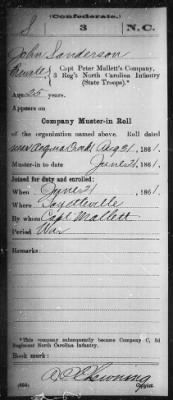 (Confederate.)
S 3 N.C.
John Sanderson
Private, Capt Peter Mallett's Company,
3 Reg't North Carolina Infantry
(State Troops).*
Age 25 years.
Appears on
Company Muster-in Roll
of the organization named above. Roll dated
Aug 21, 1861.
Muster-in to date June 21, 1861.
Joined for duty and enrolled:
When June 21, 1861.
Where Fayetteville
By whom Capt Mallett
Period War
Remarks:
*This company subsequently became Company C, 3d
Regiment North Carolina Infantry.
Book mark:
Copyist.